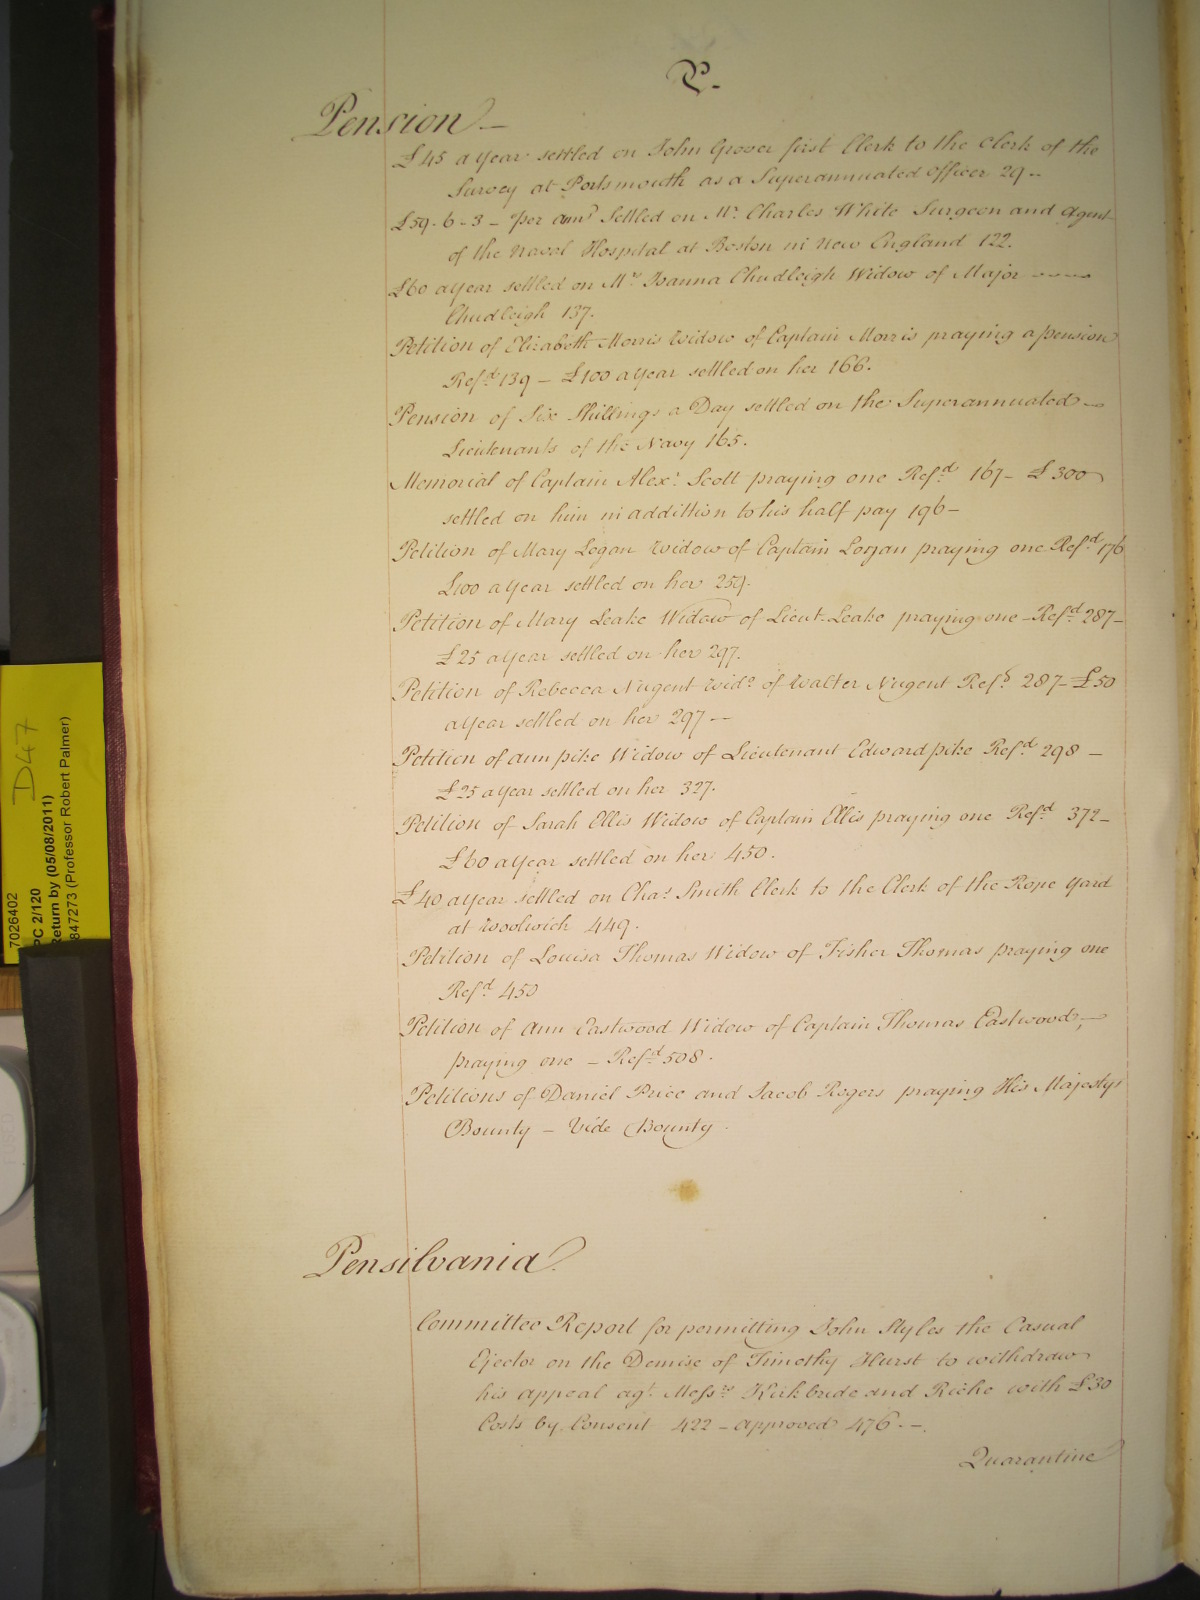 P.
Pension —
£45 a Year settled on John Grover first Clerk to the Clerk of the
Survey at Portsmouth as a Superannuated Officer 29 --
£59. 6 - 3 - per annm Settled on Mr. Charles White Surgeon and Agent
of the Naval Hospital at Boston in New England 122.
£60 a Year settled on Mrs Joanna Chudleigh Widow of Major ----
Chudleigh 137.
Petition of Elizabeth Morris Widow of Captain Morris praying a pension
Refd. 139 — £100 a Year settled on her 166.
Pension of Six Shillings a Day settled on the Superannuated —
Lieutenants of the Navy 165.
Memorial of Captain Alexr. Scott praying one Refd. 167 — £300
settled on him in addittion to his half pay 196 —
Petition of Mary Logan Widow of Captain Logan praying one Refd. 176
£100 a Year settled on her 259.
Petition of Mary Leake Widow of Lieut. Leake praying one — Refd. 287 —
£25 a Year settled on her 297.
Petition of Rebecca Nugent Wido. of Walter Nugent Refd. 287 — £50
a Year settled on her 297 --
Petition of Ann pike Widow of Lieutenant Edward pike Refd. 298 —
£25 a Year settled on her 327.
Petition of Sarah Ellis Widow of Captain Ellis praying one Refd. 372 —
£60 a Year settled on her 450.
£40 a Year settled on Chas. Smith Clerk to the Clerk of the Rope Yard
at Woolwich 449.
Petition of Louisa Thomas Widow of Fisher Thomas praying one
Refd. 450
Petition of Ann Eastwood Widow of Captain Thomas Eastwood, —
praying one — Refd. 508.
Petitions of Daniel Price and Jacob Rogers praying His Majestys
Bounty — Vide Bounty.
Pensilvania.
Committee Report for permitting John Styles the Casual
Ejector on the Demise of Timothy Hurst to withdraw
his appeal agt. Messrs. Kirkbride and Riche with £30
Costs by Consent 422 — approved 476. --
Quarantine
D47
7026402
PC 2/120
Return by (05/08/2011)
847273 (Professor Robert Palmer)